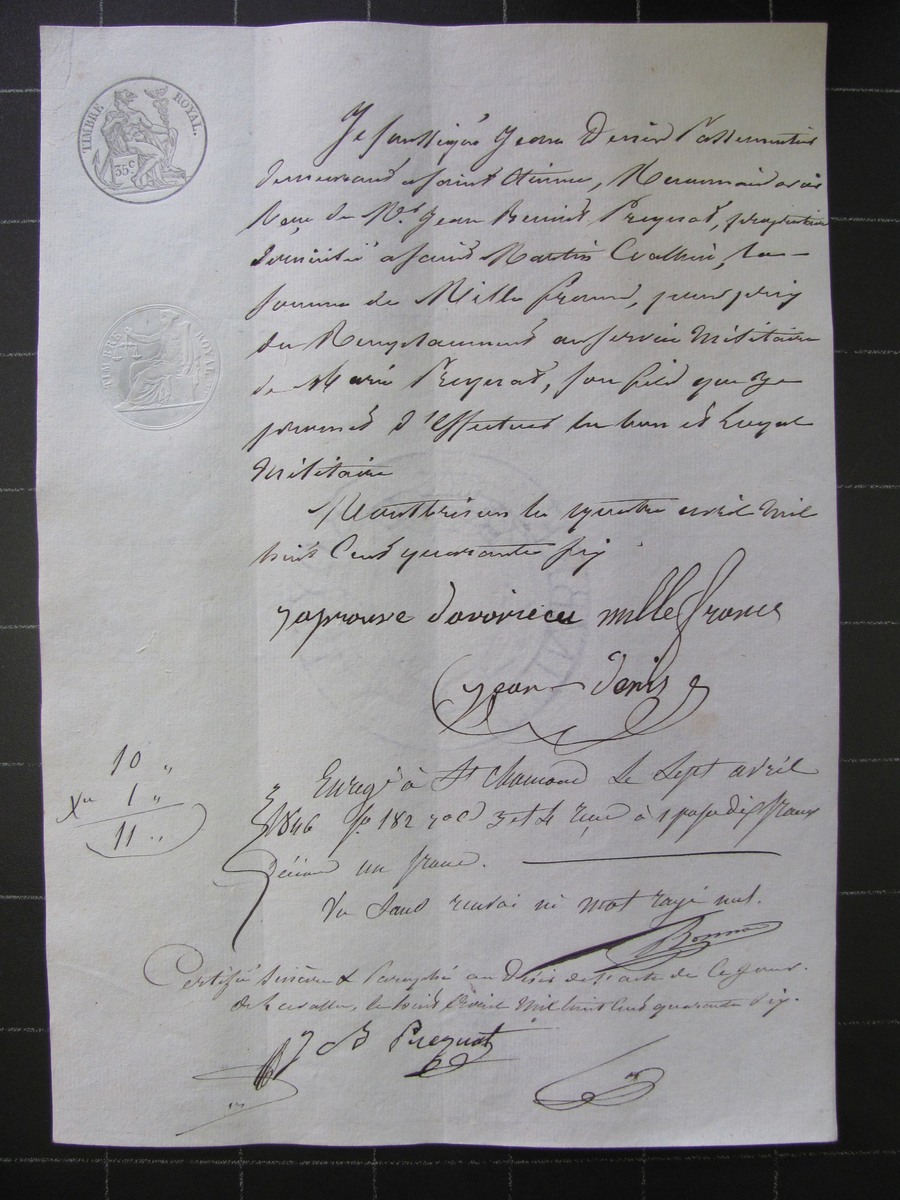 TIMBRE ROYAL.
35c
TIMBRE ROYAL
Je soussigné Jean Denis
demeurant a Saint Etienne, Reconnais avoir
Reçu de Mr. Jean Benoist Preynat, propriétaire
domicilié a Saint Martin la
somme de Mille francs, pour prix
du Remplacement au service Militaire
de Marie Preynat, son fils que je
promet d'Effectuer en bon et Loyal
Militaire
Montbrison le quatre avril mil
huit Cent quarante six
japrouve davoirecu mille francs
jean Denis
10 "
1 "
11 "
Enregé à St Chamond Le Sept avril
1846 fo 182 3 et 4 reçu à 1 p% dix francs
Décime un franc.
Vu Sans renvoi ni mot rayé nul.
Certifié Sincère & Paraphé au Désir de l'acte de Ce jour.
le huit Avril Mil huit Cent quarante Six.
J B Preynat